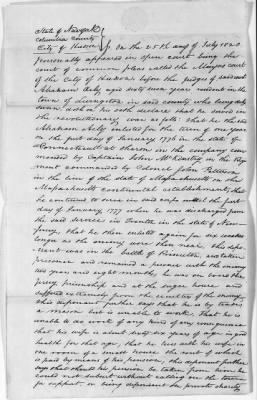 State of New York
Columbia County
City of Hudson
On the 25th day of July 1820
personally appeared in open court being the
court of common pleas called the Mayors court
of the City of Hudson before the judges of said court
Abraham aged sixty six years resident in the
town of Livingston in said county who being duly
sworn doth on his oath declare that he served in
the revolutionary war as follows that he the said
Abraham enlisted for the term of one year
on the first day of January 1776 in the state of
Connecticut at Sharon in the company com
manded by Captain John McKinstry in the Reg
iment commanded by Colonel John Patterson
in the line of the state of Massachusetts on the
Massachusetts continental establishment, that
he continued to serve in said corps until the first
day of January 1777 when he was discharged from
the said service in Trenton in the state of New
Jersey, that he then enlisted again for six weeks
longer as the enemy were then near. This depo
nent was in the battle of Princeton and taken
prisoner and remained a prisoner with the enemy
two years and eight months, he was on board the
Jersey prison ship and at the sugar house and
suffered extremely from the cruelties of the enemy,
this deponent further says that he is by trade
a mason but is unable to work. That he is
unable to do work of any kind of any consequence
that his wife is about sixty six years of age in good
health for that age, that he lives with his wife in
one room of a small house the rent of which
is paid by means of his pension, this deponent further
says that should his pension be taken from him he
could not subsist without calling on the town
for support or being dependent on private charity